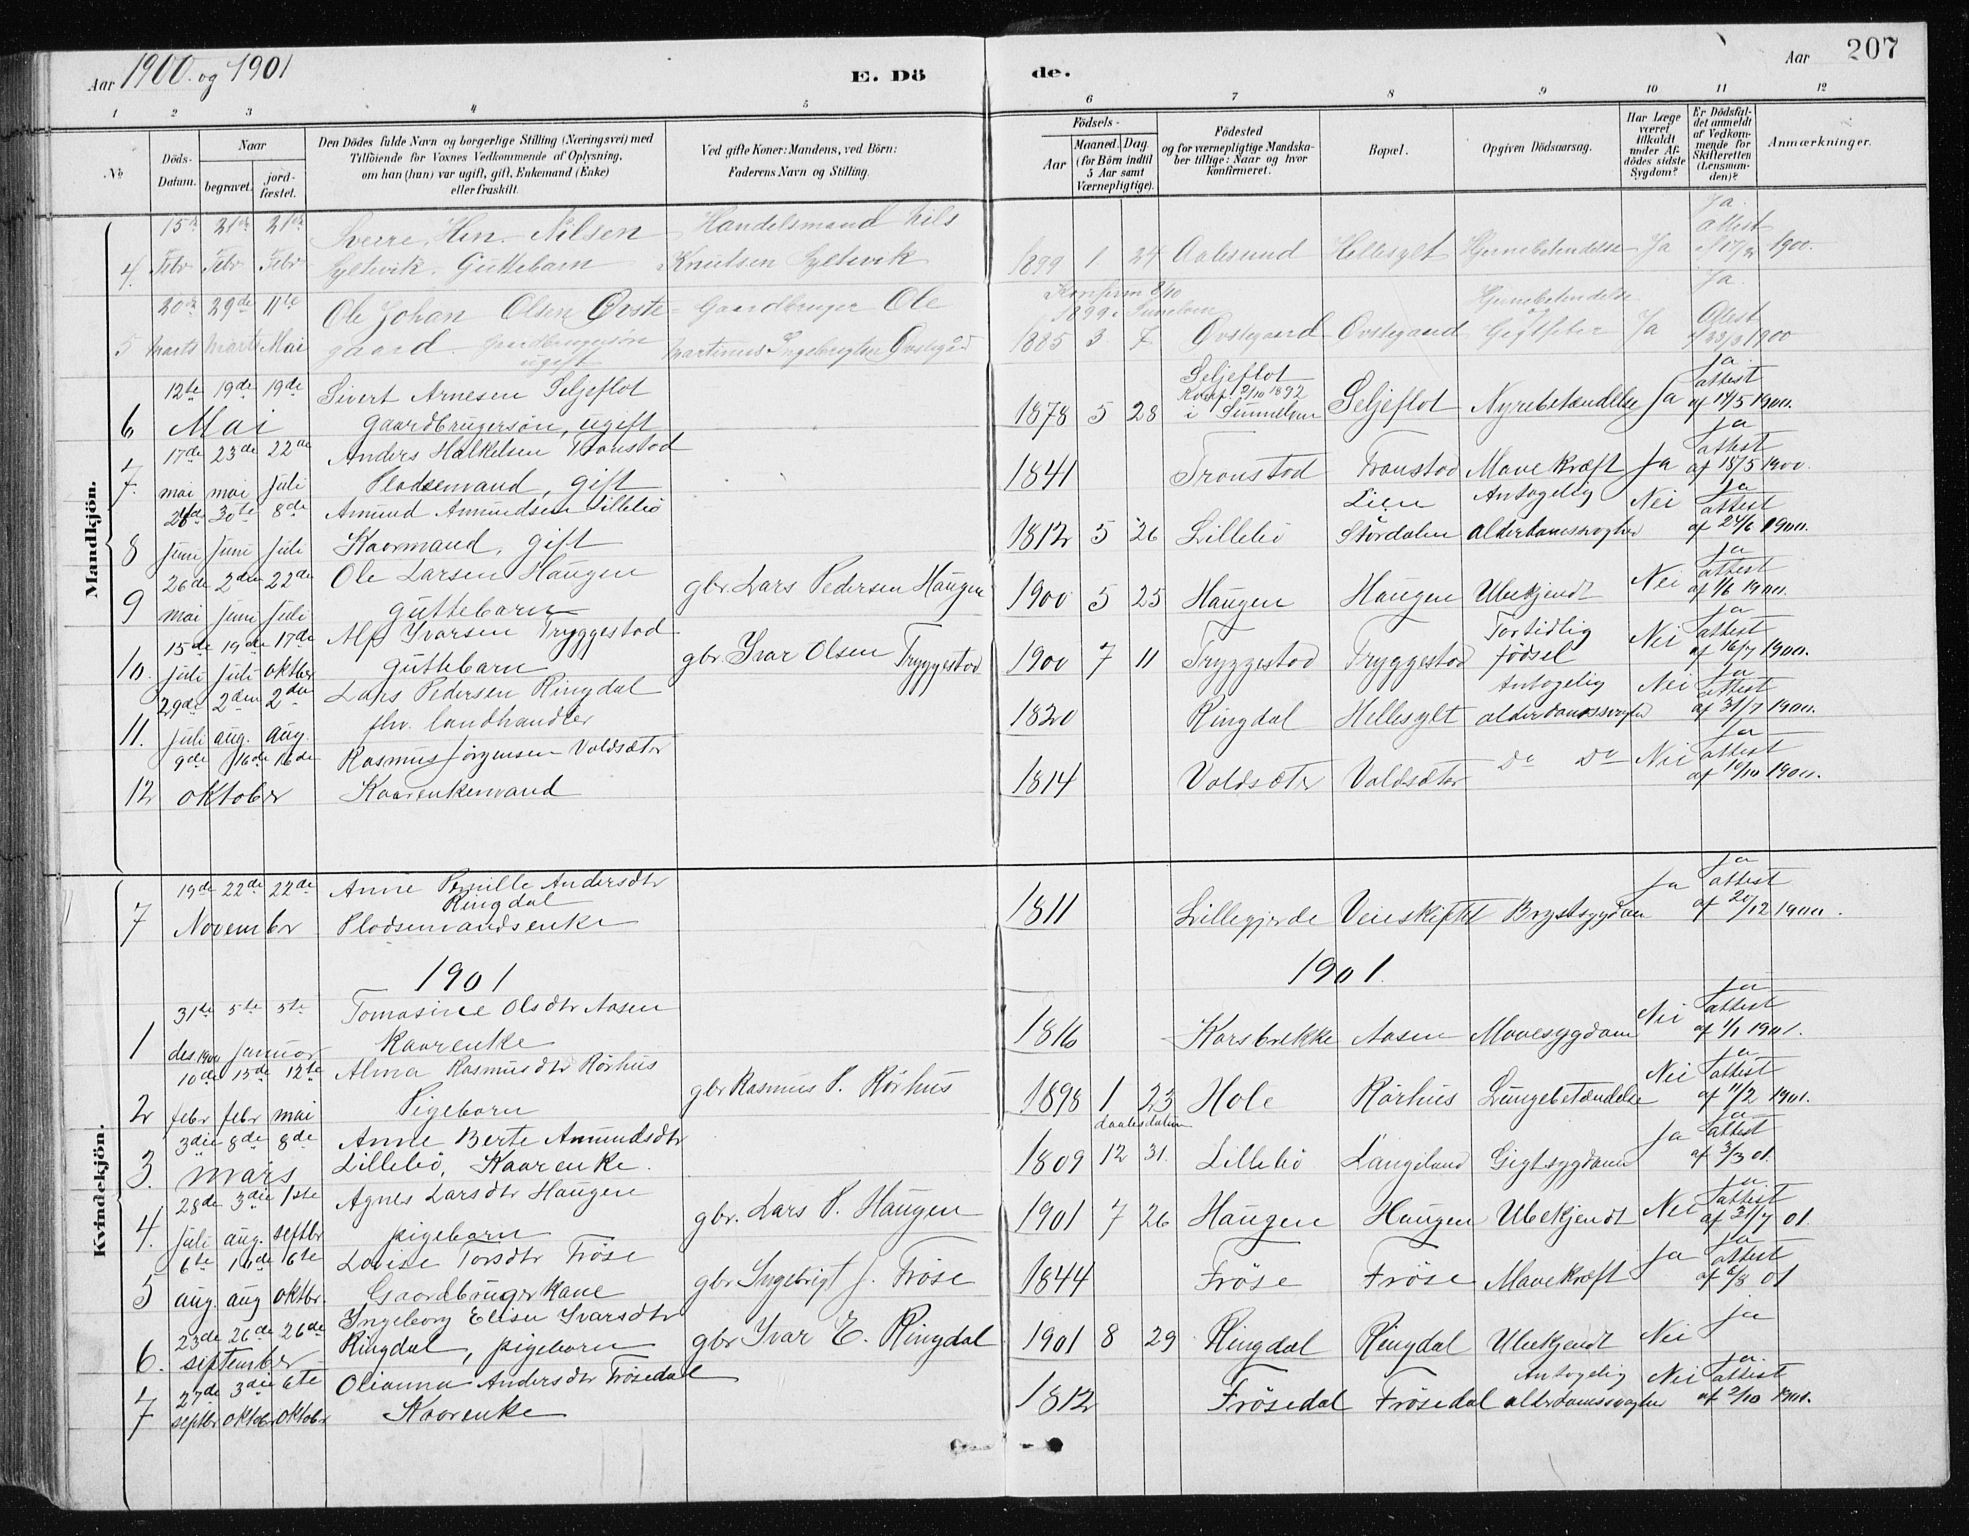 Aar 1900 og 1901
E. Döde.
Aar 207
1 2 3 4 5 6 7 8 9 10 11 12
No
Döds-Datum.
Naar
begravet.
jord-fæstet.
Den Dödes fulde Navn og borgerlige Stilling (Næringsvei) med
Tilföiende for Voxnes Vedkommende af Oplysning,
om han (hun) var ugift, gift, Enkemand (Enke)
eller fraskilt.
Ved gifte Koner: Mandens, ved Börn:
Faderens Navn og Stilling.
Födsels-
Aar
Maaned. Dag.
(for Börn indtil
5 Aar samt
Værnepligtige).
Födested
og for værnepligtige Mandska-
ber tillige: Naar og hvor
konfirmeret.
Bopæl.
Opgiven Dödsaarsag.
Har Læge
været
tilkaldt
under Af-
dödes sidste
Sygdom?
Er Dödsfal-
det anmeldt
af Vedkom-
mende for
Skifteretten
(Lensman-
den)?
Anmærkninger.
Mandkjön.
15de 21de 21de Sverre Hen. Nilsen Handelsmand Nils Ja
4. Febr Febr Febr Syltevik. Guttebarn Knutsen Syltevik 1899 1 24 Aalesund Hellesylt Hjernebetendelse Ja attest 1900.
20de 29de 11te Ole Johan Olsen Øvste- Gaardbruger Ole Konfirm 8/10 1899 i Sunelven Hjernebetendelse og Ja
5 Marts Marts Mai gaard. Gaardbrugersøn ugift Martinus Ingebrigtsen Øvstegård 1885 3 7 Øvstegaard Øvstegaard Giftfeber Ja Attest 1900
12te 19de 19de Sivert Arnesen Seljeflot Seljeflot Konf. 2/10 1892 ja
6 Mai Gaardbrugersøn, ugift 1878 5 28 i Sunnelven Seljeflot Nyrebetændelse Ja attest af 14/5 1900.
17de 23de 22de Anders Halkelsen Tronstad ja
7. mai mai juli Plodsemand, gift 1841 Tronstad Tronstad Mavekræft Ja attest af 18/5 1900.
30te 8de Amund Amundsen Lillebö Lien Antagelig Nei ja
8 juni juni juli Kaarmand, gift 1812 5 26 Lillebö Stordalen alderdomssvaghed attest af 24/6 1900.
26de 2den 22de Ole Larsen Haugen gbr. Lars Pedersen Haugen Nei ja
9 mai juni juli guttebarn 1900 5 25 Haugen Haugen Ubekjendt attest af 1/6 1900.
15de 19de 17de Alf Ivarsen Tryggestad gbr. Ivar Olsen Tryggestad Fortidlig Nei ja
10. juli juli oktbr guttebarn 1900 7 11 Tryggestad Tryggestad födsel attest af 16/7 1900.
29de 2den 2den Lars Pedersen Ringdal Antagelig Nei ja
11. juli aug. aug. fhv. landhandler 1820 Ringdal Hellesylt alderdomssvaghed attest af 31/7 1900.
9de 16de 16de Rasmus Jörgensen Voldsæter Do Do Nei ja
12 oktober Kaarenkemand 1814 Voldsæter Voldsæter attest af 10/10 1900.
Kvindekjön.
19de 22de 22de Anne Pernille Andersdtr Ringdal Ja ja
7 November Plodsemandsenke 1811 Lillegjerde Veieskiftet Brystsygdom attest af 20/12 1900.
1901 1901.
31te 5te 5te Tomasine Olsdtr Aasen Nei ja
1 des 1900 januar Kaarenke 1816 Korsbrekke Aasen Mavesygdom attest af 1/1 1901.
10de 15de 12te Alma Rasmusdtr Rörhus gbr Rasmus P. Rörhus Nei ja
2 febr febr mai Pigebarn 1898 1 23 Hole Rörhus Lungebetændelse attest af 11/2 1901.
3die 8de 8de Anne Berte Amundsdtr daabsdatum Ja ja
3. mars Lillebö, Kaarenke. 1809 12 31. Lillebö Langeland Gigtsygdom attest af 3/3 01.
28de 3die 1ste Agnes Larsdtr Haugen gbr. Lars P. Haugen ja
4. juli aug. septbr pigebarn 1901 7 26 Haugen Haugen Ubekjendt Nei attest af 31/7 01.
6te 16de 16te Lovise Torsdtr Fröse gbr Ingebrigt J. Fröse Ja ja
5 aug. aug oktbr. Gaardbrugerkone 1844 Fröse Fröse Mavekræft attest af 6/8 01
23de 26de 26de Ingeborg Elise Ivarsdtr gbr Ivar E. Ringdal ja
6. september Ringdal, pigebarn 1901 8 29 Ringdal Ringdal Ubekjendt Nei
27de 3die 6te Olianna Andersdtr Frösedal Antagelig Nei ja
7 septbr oktobr oktobr Kaarenke 1812 Frösedal Frösedal alderdomssvaghed attest af 2/10 1901.